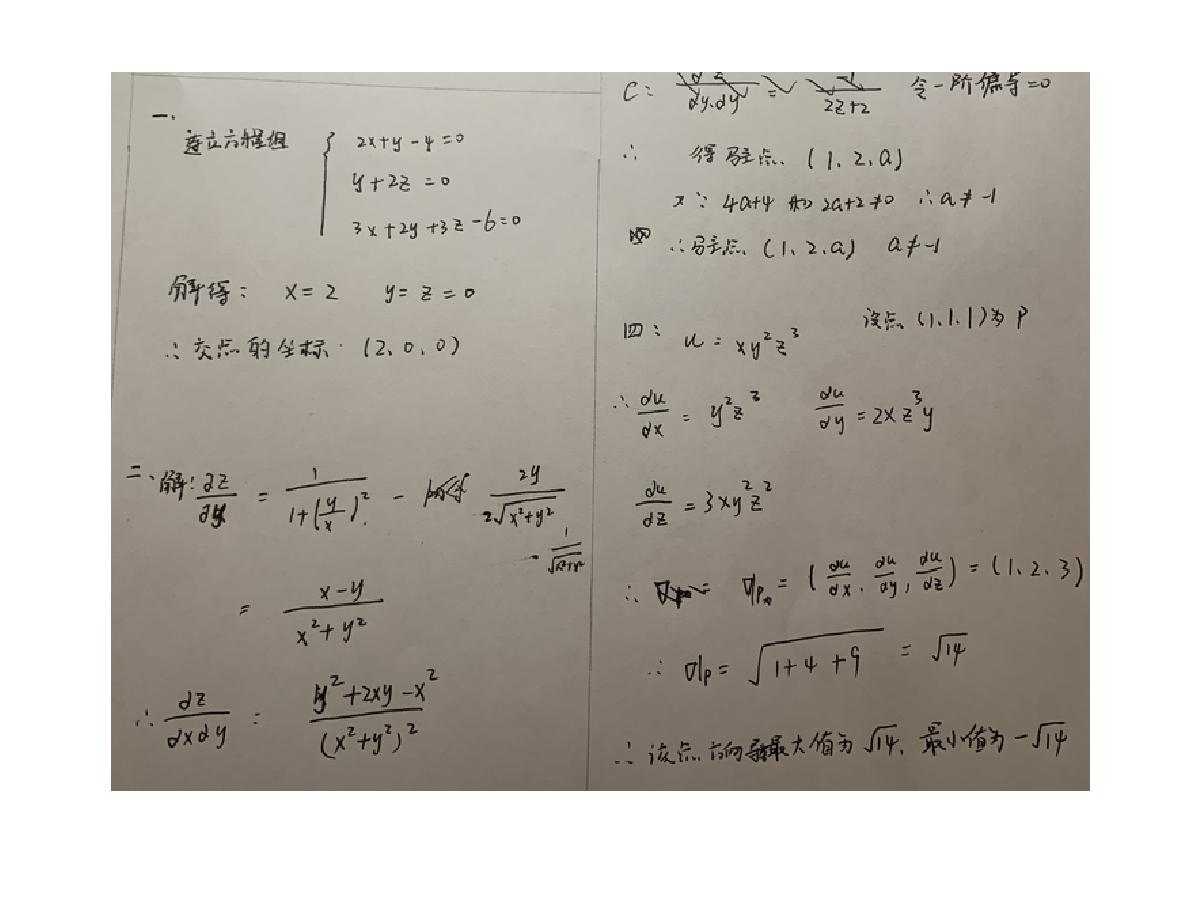 一.
连立方程组 { 2x+y-4=0
y+2z=0
3x+2y+3z-6=0
解得: x=2 y=z=0
∴交点的坐标·(2,0,0)
二、解: ∂z/∂y = 1/(1+(y/x)².) - 2y/(2√(x²+y²))
= (x-y)/(x²+y²)
∴ dz/dxdy = (y²+2xy-x²)/(x²+y²)²
C: dy.dy = 2z+2 令一阶偏导=0
∴ 得驻点 (1,2,a)
∵ 4a+4 和 2a+2≠0 ∴a≠-1
∴驻点 (1,2,a) a≠-1
四: u=xy²z³ 设点(1,1,1)为P
∴ du/dx = y²z³ du/dy = 2xz³y
du/dz = 3xy²z²
∴ ∇|p = (du/dx, du/dy, du/dz) = (1,2,3)
∴ ∇|p = √(1+4+9) = √14
∴该点方向导最大值为√14, 最小值为-√14